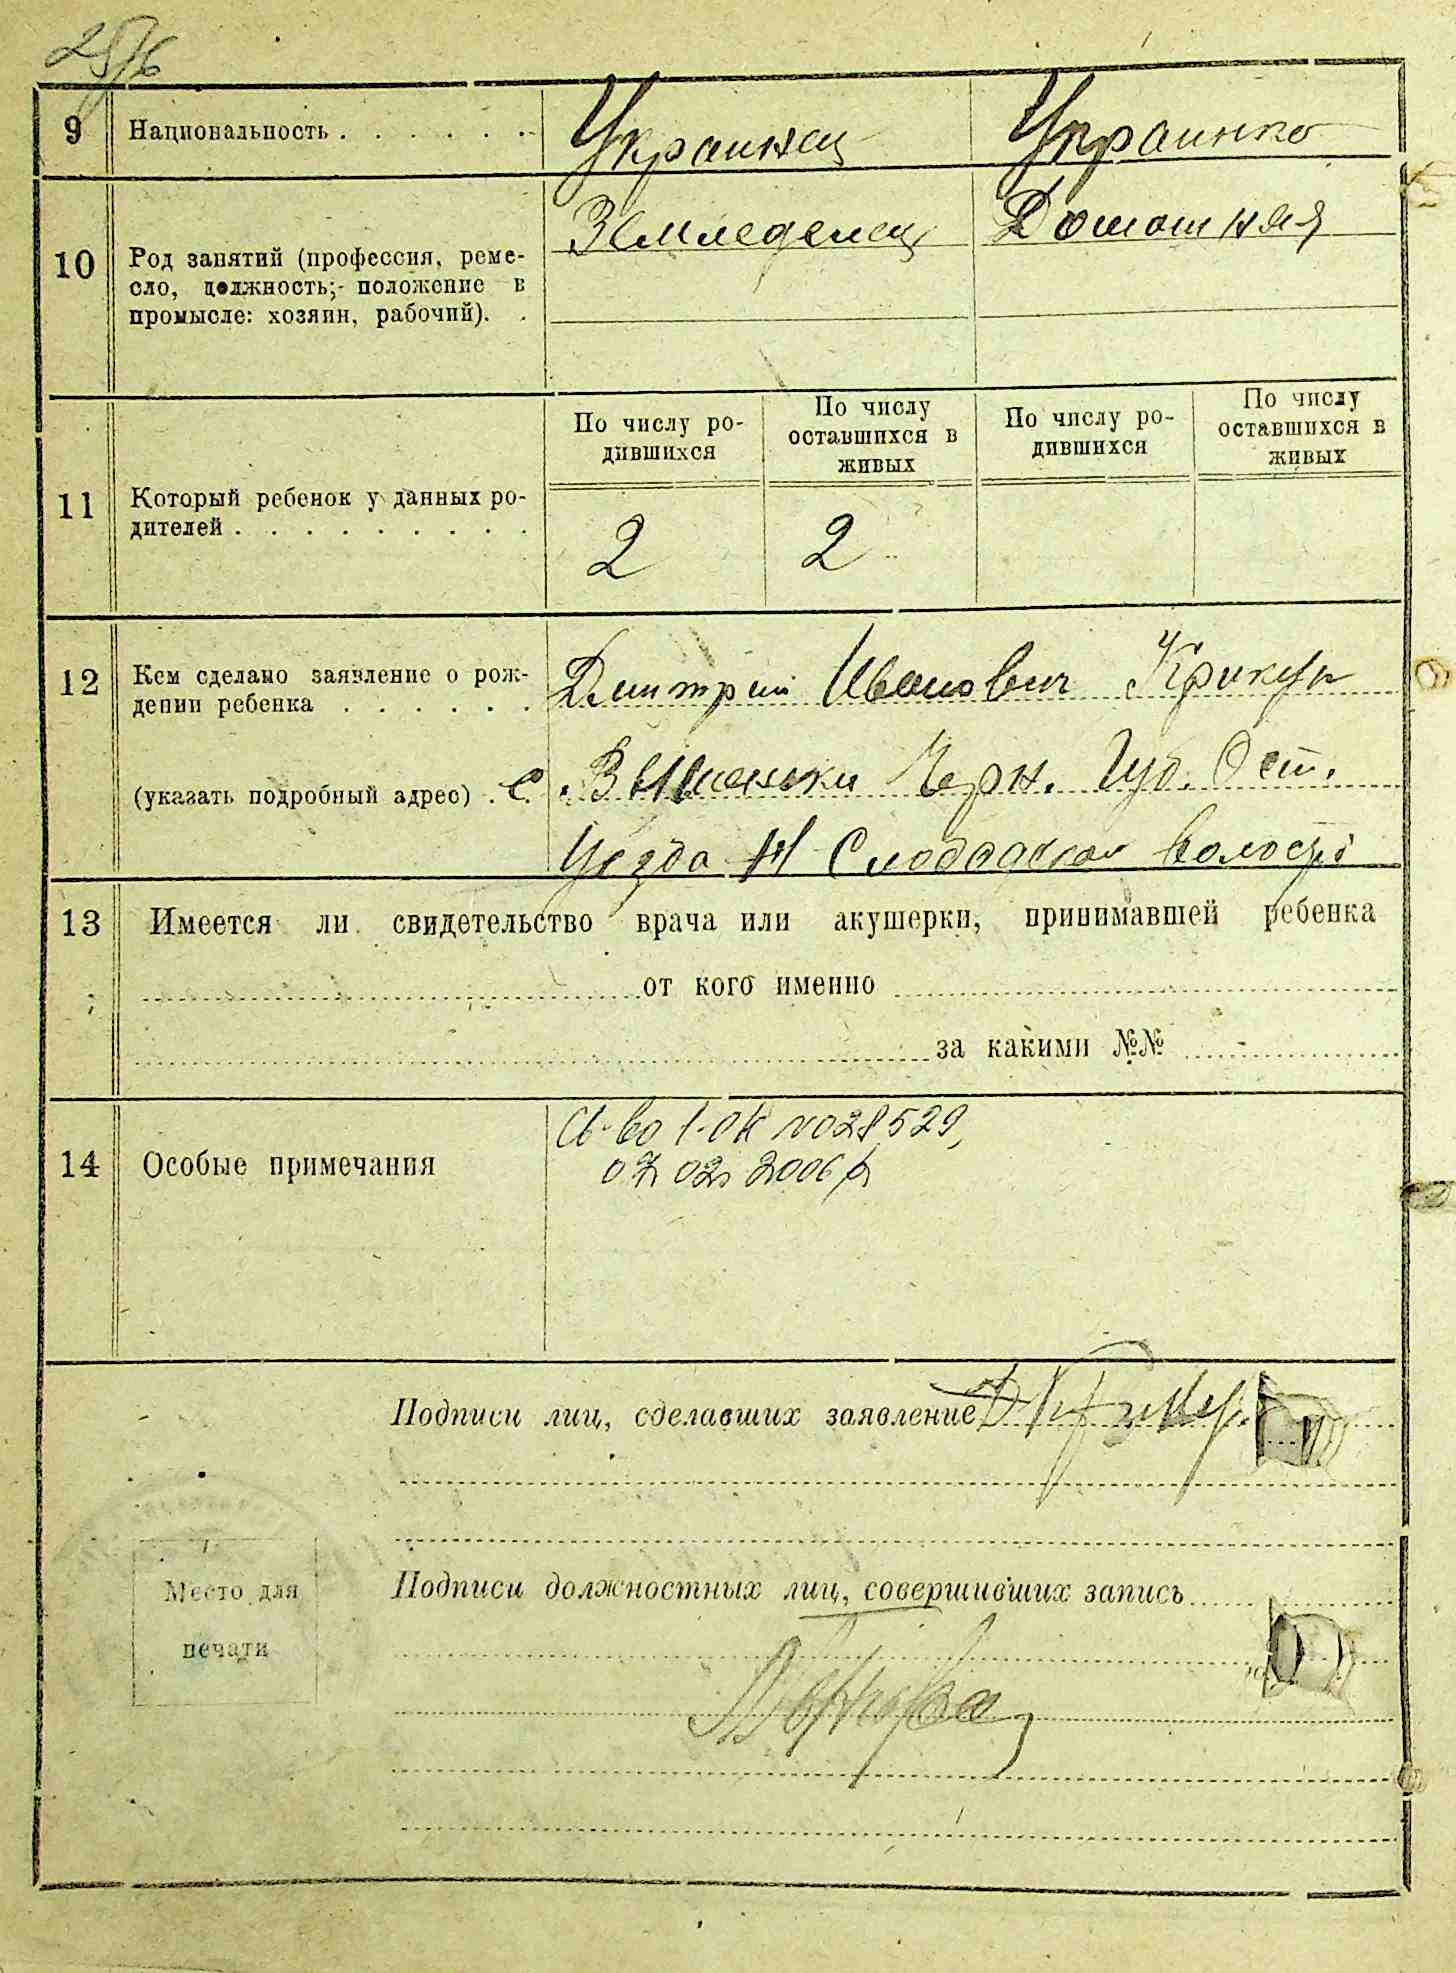 25/6
9 Национальность . . . . . . Украинец Украинка
10 Род занятий (профессия, реме-
сло, должность;- положение в
промысле: хозяин, рабочий). .
Земледелец Домашняя
11 Который ребенок у данных ро-
дителей . . . . . . . . .
По числу ро-
дившихся
По числу
оставшихся в
живых
По числу ро-
дившихся
По числу
оставшихся в
живых
2 2
12 Кем сделано заявление о рож-
дении ребенка . . . . . .
Дмитрий Иванович Крикун
(указать подробный адрес) . с. Вишеньки Черн. Губ. Ост.
Уезда Н Слободской волости
13 Имеется ли свидетельство врача или акушерки, принимавшей ребенка
от кого именно
за какими №№
14 Особые примечания
Св-во 1-ОК №028529,
07.02.2006 р
Подписи лиц, сделавших заявление
Подписи должностных лиц, совершивших запись
Место для
печати